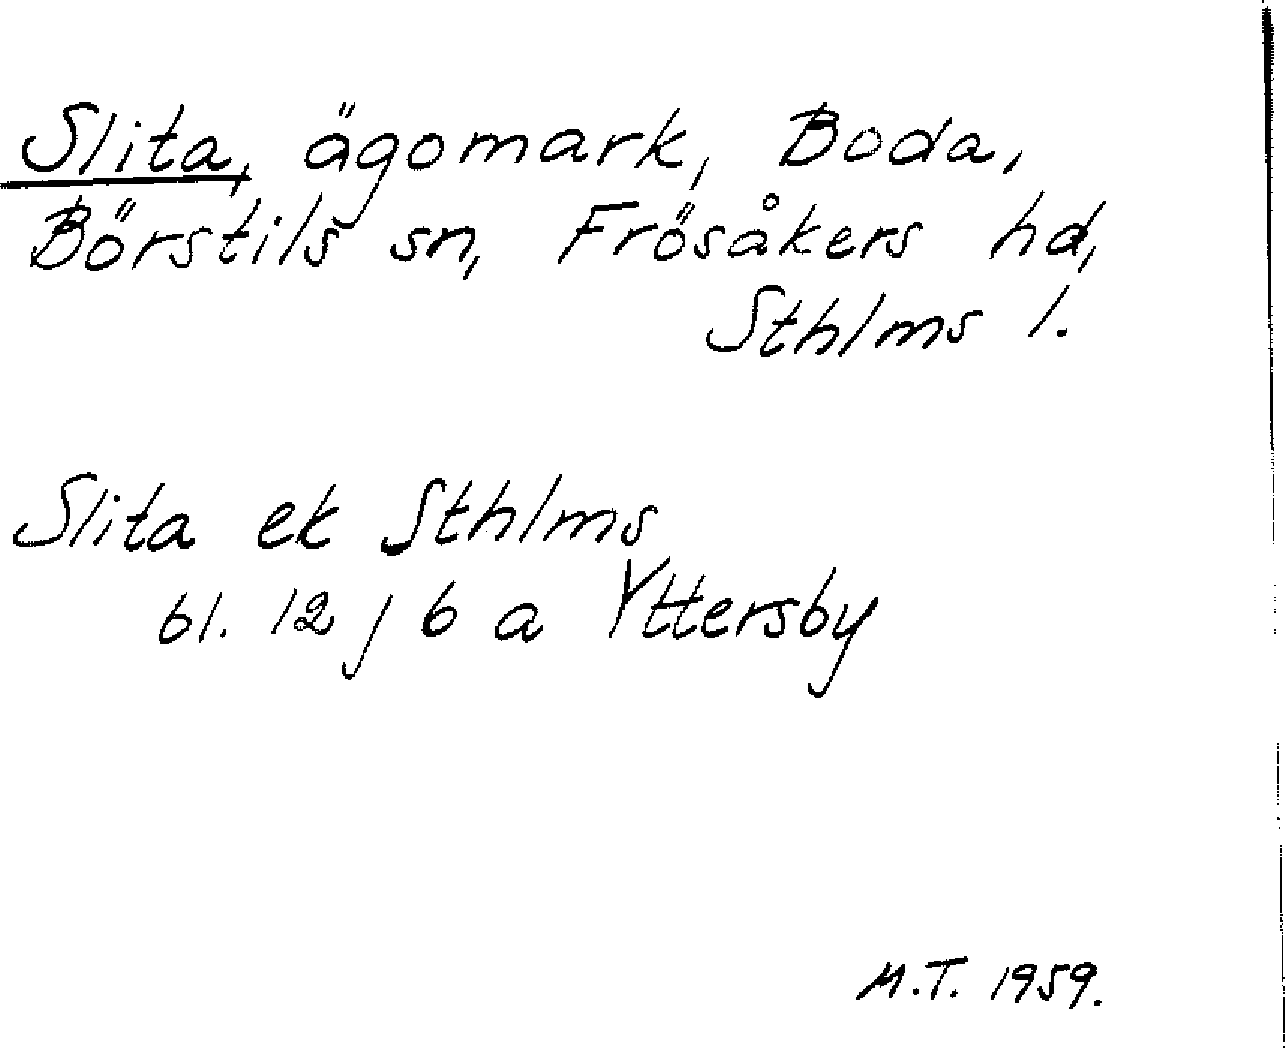 Slita, ägomark, Boda,
Börstils sn, Frösåkers hd,
Sthlms l.
Slita ek Sthlms
bl. 12 j 6 a Yttersby
M.T. 1959.